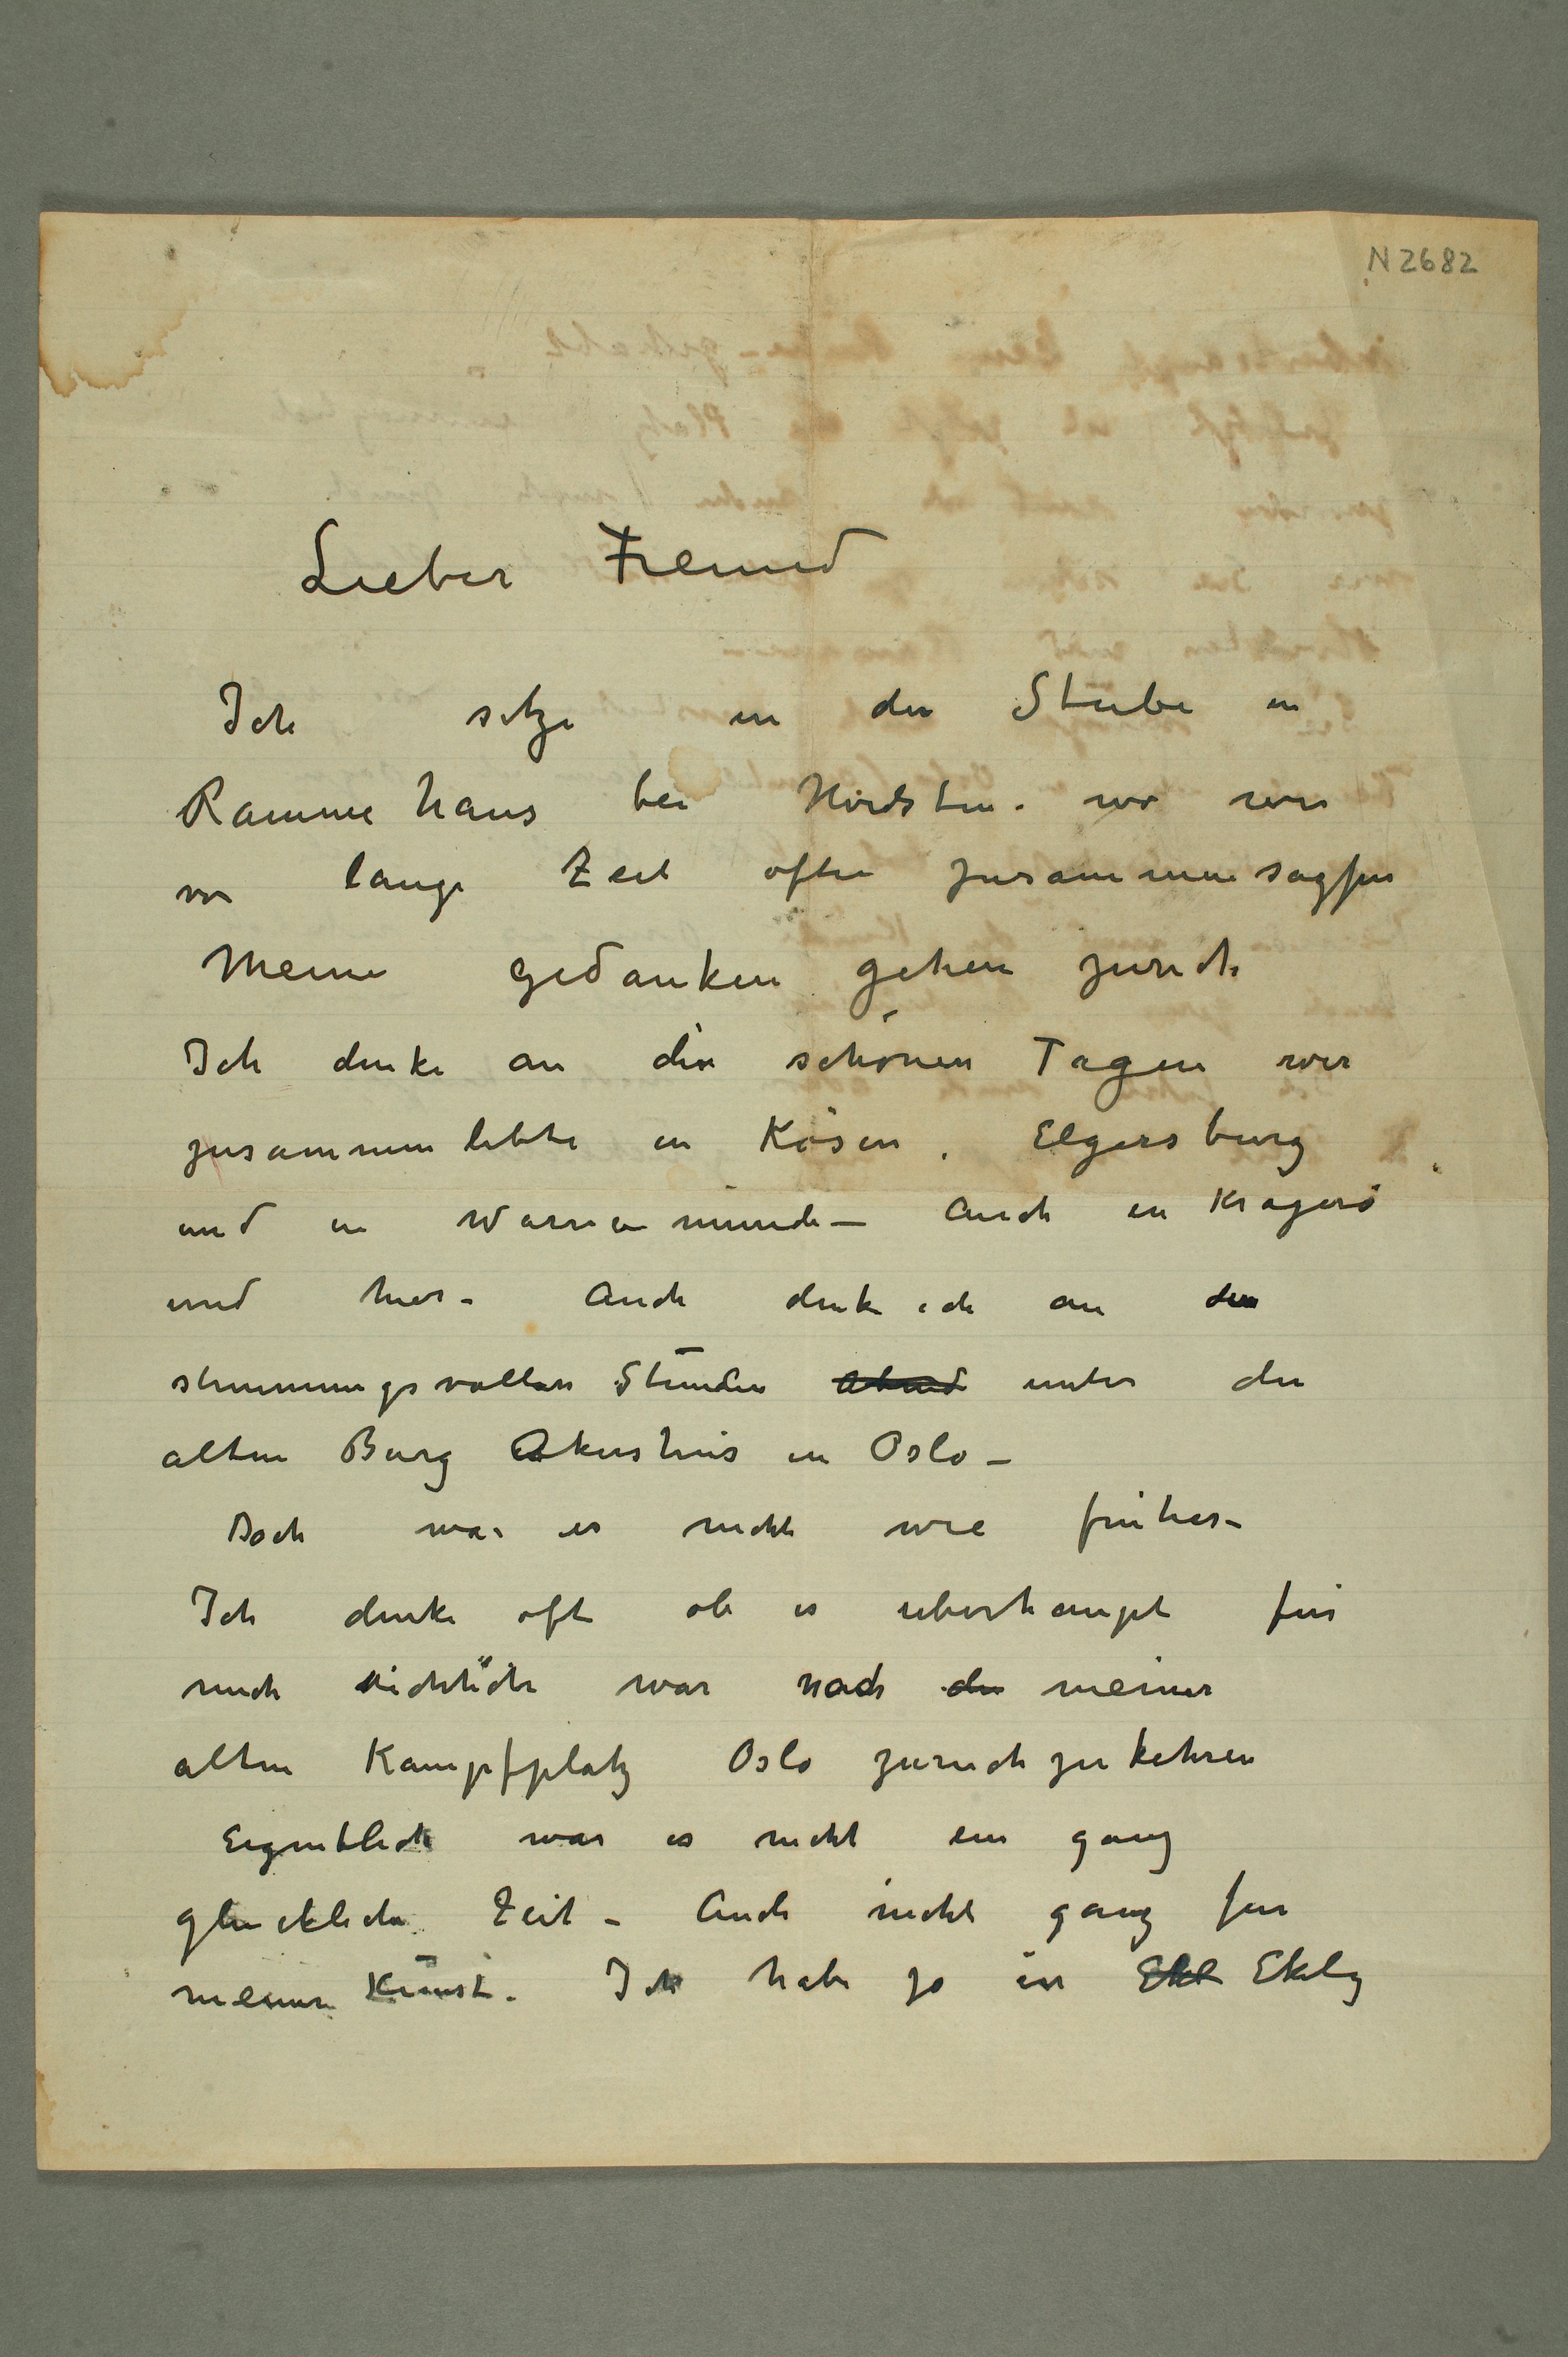 N 2682
Lieber Freund
Ich sitze in der Stube in
Rammehaus bei Hvidsten. wo wir
vor lange Zeit often zusammen saszen
Meine gedanken gehen zurück
Ich denke an die schönen Tagen wir
zusammen lebte in Kösen, Elgersburg
und in Warnemünde – Auch in Kragerö
und hier – Auch denk ich an den
stimmungsvollen Stunden Abend unter der
alten Burg Akershus in Oslo –
Doch war es nicht wie früher –
Ich denke oft ob es uberhaupt für
mich war nach der meiner
alten Kampfplatz Oslo zuruchzukehren
Eigentlich war es nicht ein ganz
glückliche Zeit – Auch nicht ganz für
meine Kunst. Ich habe ja in Ekl Ekely